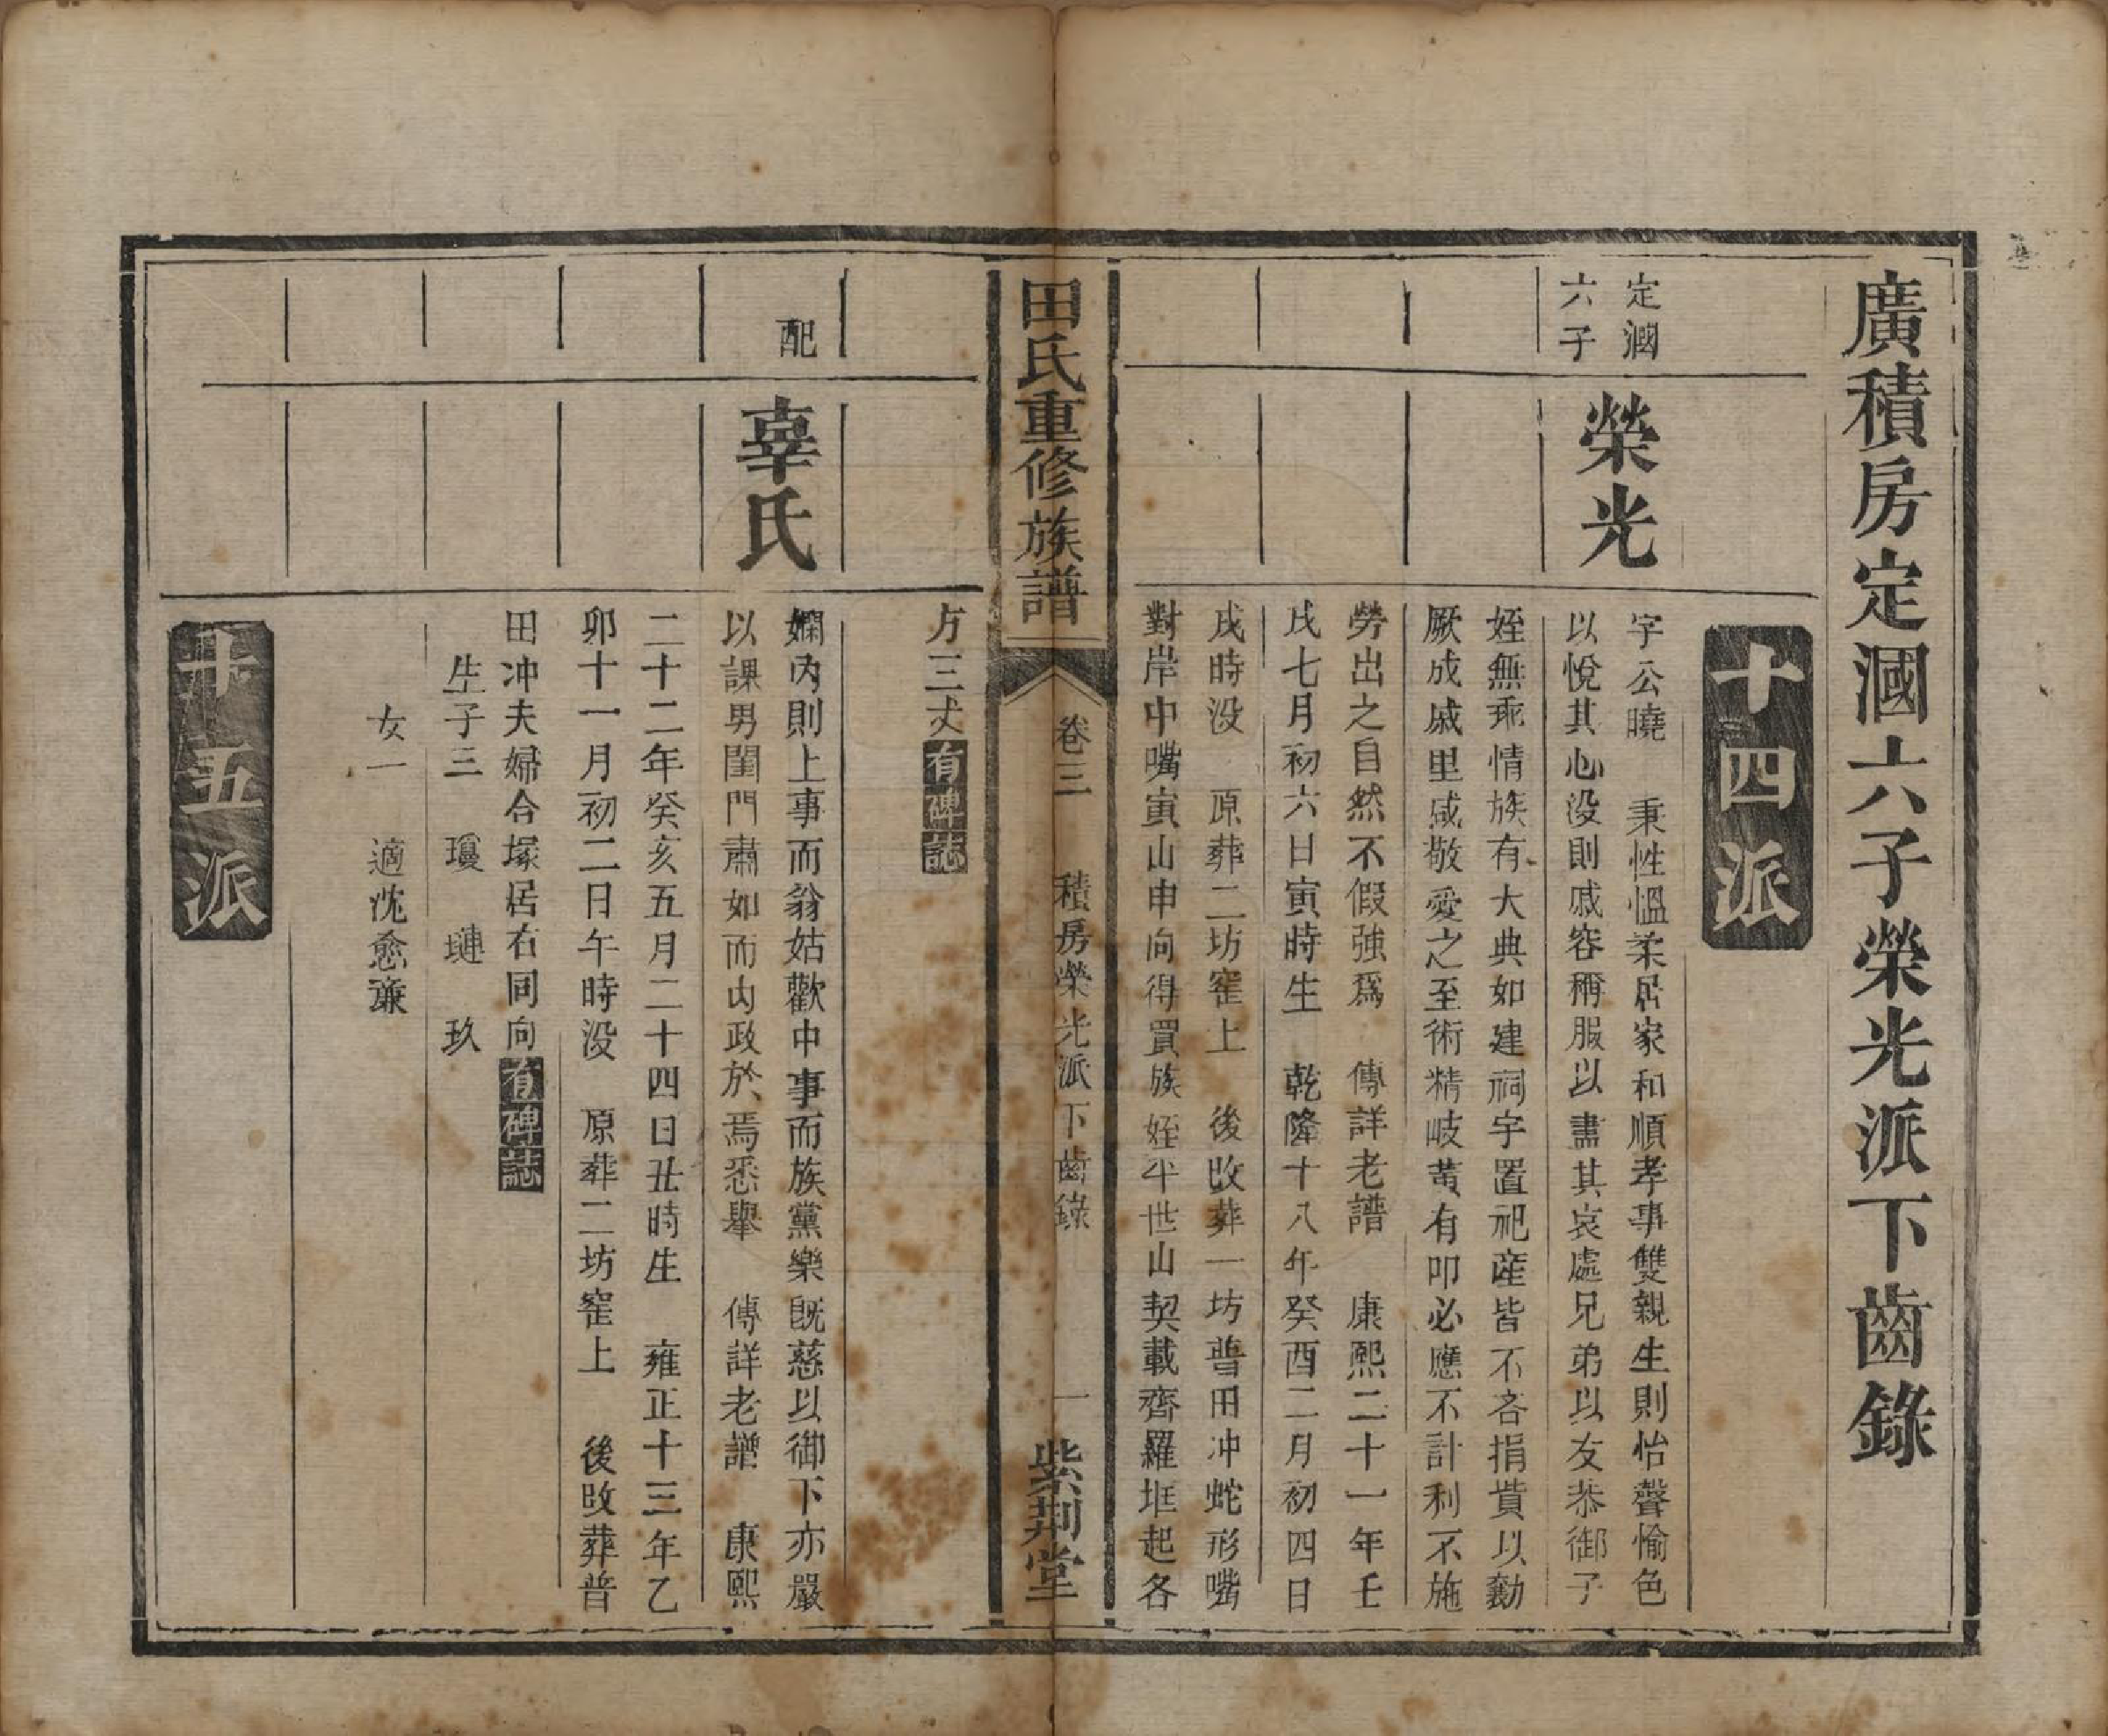 廣積房定漍六子榮光派下齒錄
十四派
定漍
六子
榮光
字公曉 秉性溫柔居家和順孝事雙親生則怡聲愉色
以悅其心没則戚容稱服以盡其哀處兄弟以友恭御子
姪無乖情族有大典如建祠宇置祀產皆不吝捐貲以勷
厥成戚里咸敬愛之至術精岐黃有叩必應不計利不施
勞出之自然不假強爲 傳詳老譜 康熙二十一年壬
戌七月初六日寅時生 乾隆十八年癸酉二月初四日
戌時没 原葬二坊窑上 後改葬一坊普田冲蛇形嘴
對岸中嘴寅山申向得買族姪半世山契載齊羅㘭起各
田氏重修族譜
卷三 積房榮光派下齒錄 一
紫荆堂
方三丈有碑誌
配
辜氏
嫻內則上事而翁姑歡中事而族黨樂既慈以御下亦嚴
以課男閨門肅如而內政於焉悉舉 傳詳老譜 康熙
二十二年癸亥五月二十四日丑時生 雍正十三年乙
卯十一月初二日午時没 原葬二坊窑上 後改葬普
田冲夫婦合塚居右同向有碑誌
生子三 瓊 璉 玖
女一 適沈愈㢘
十五派